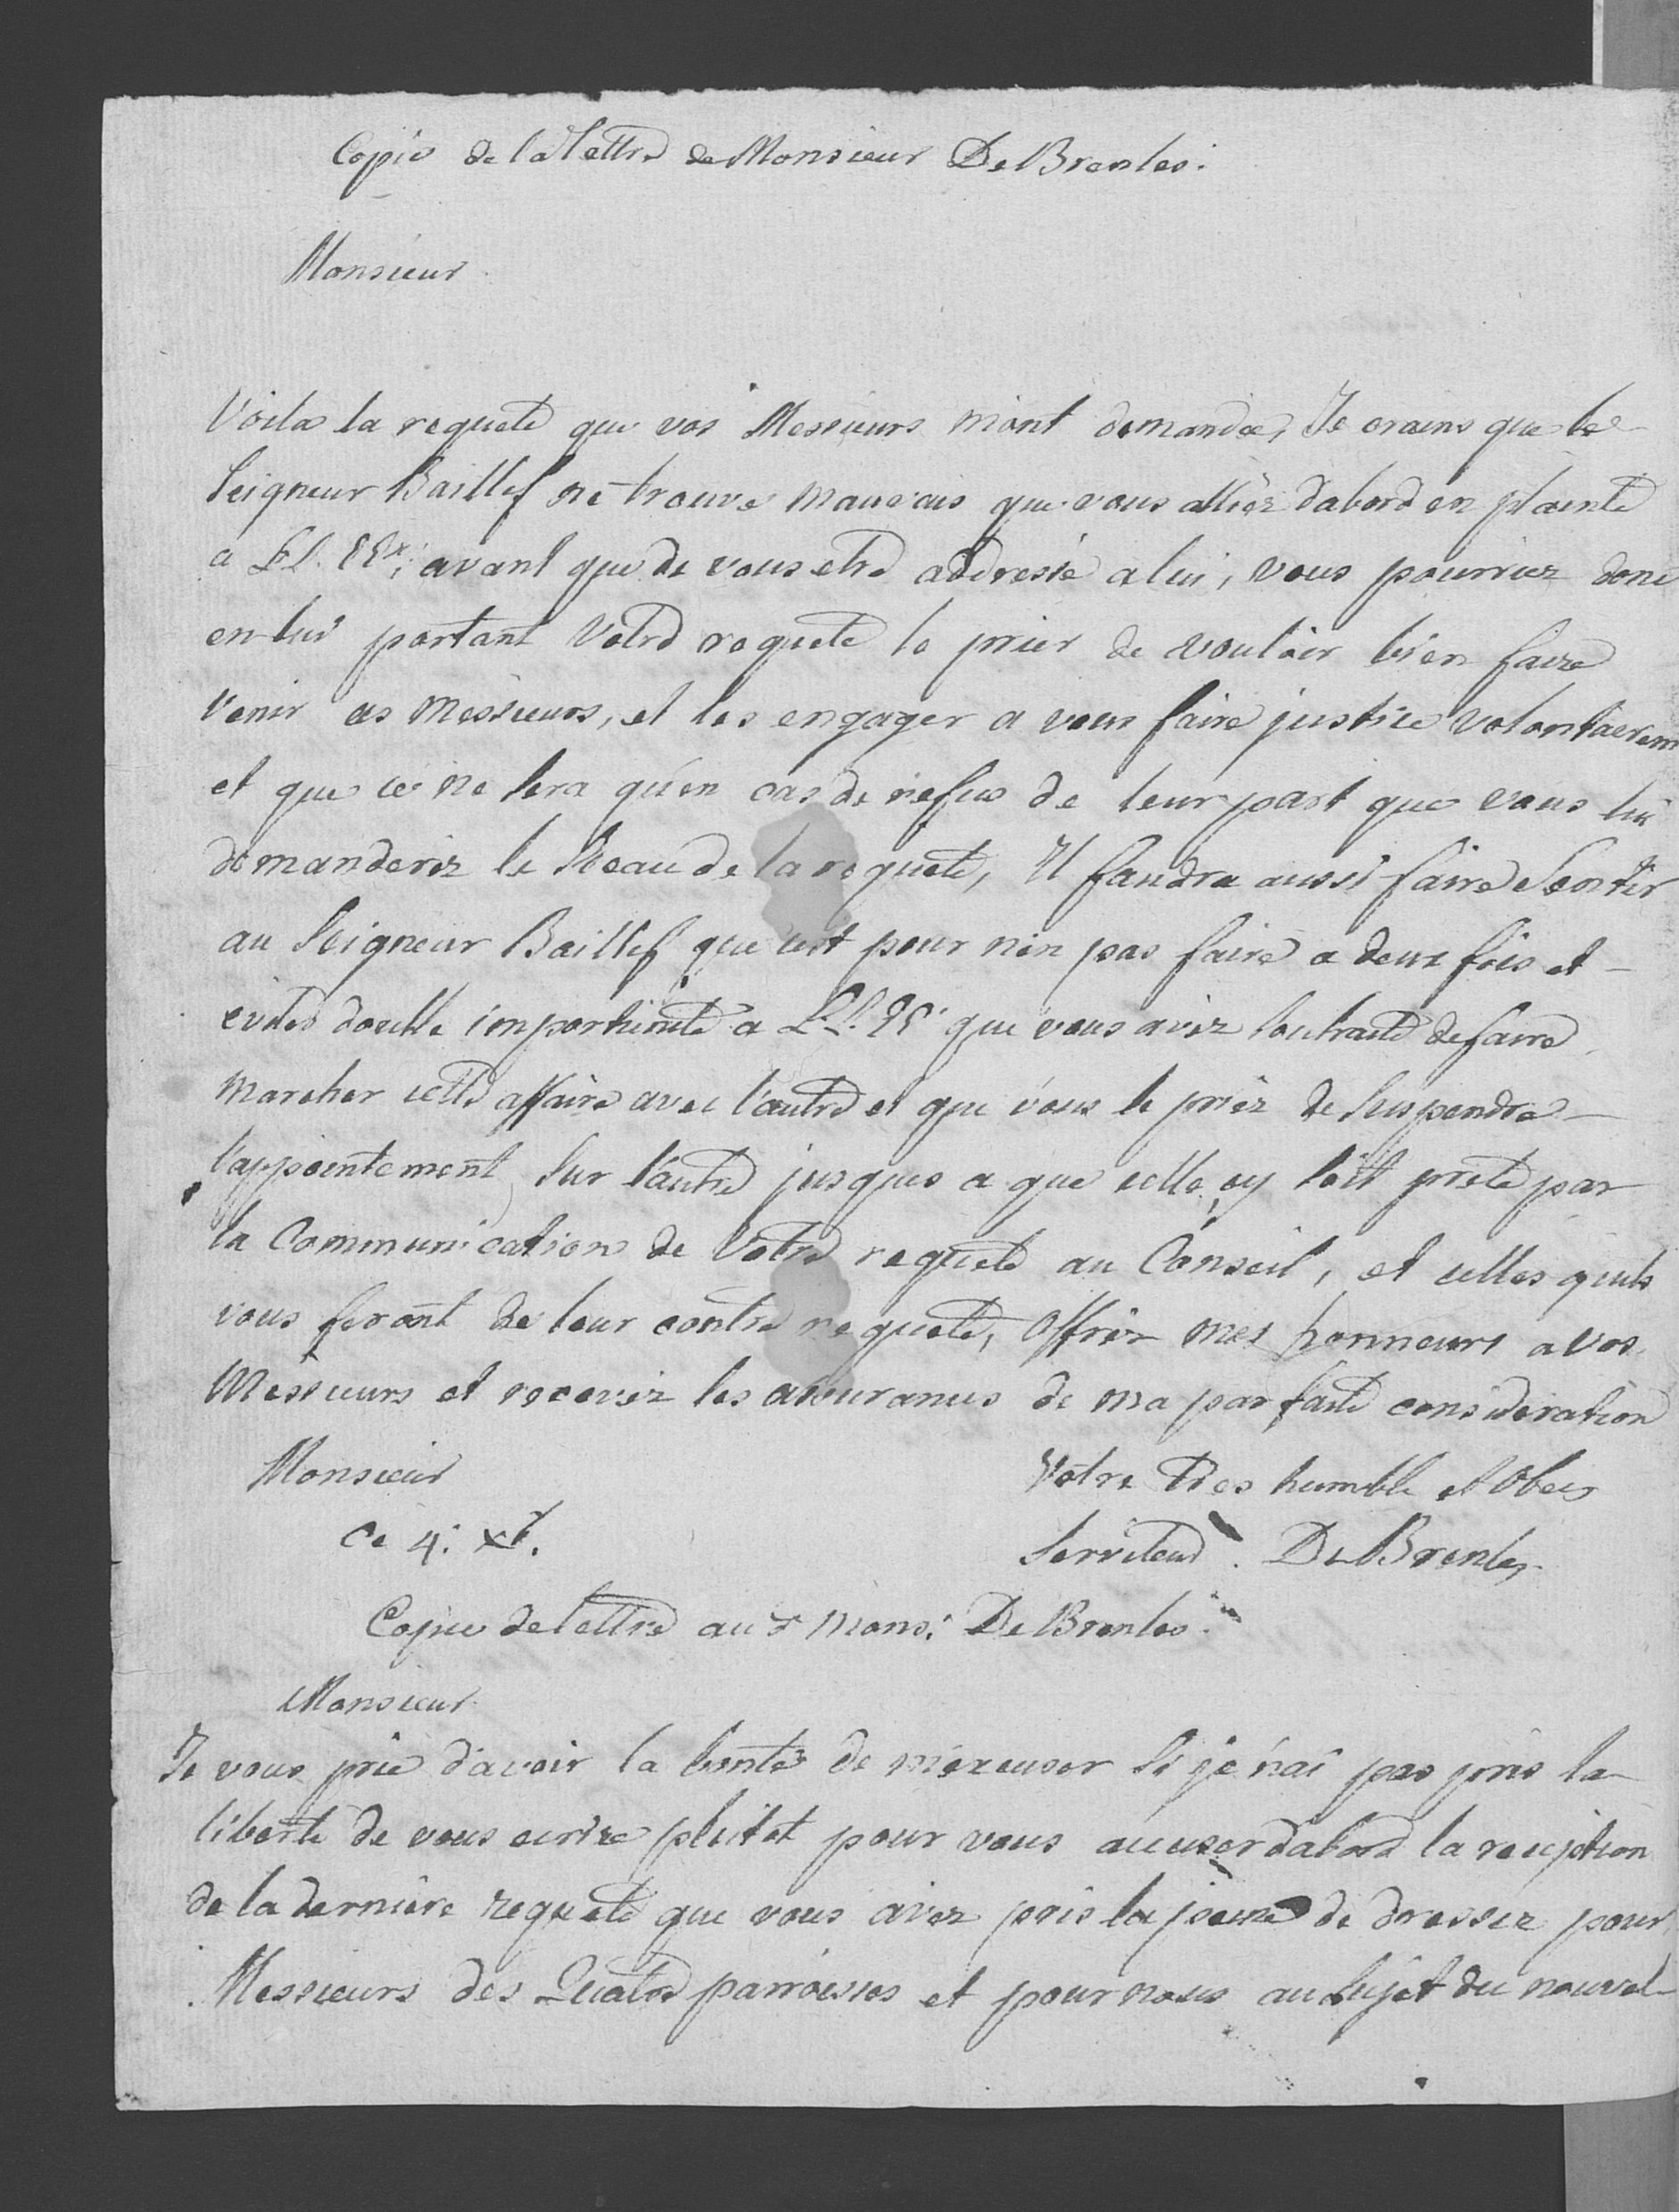 Copie de la Lettre de Monsieur De Brenles.
Monsieur
Voila la requete que vos Messieurs m'ont demandée, Je crains que le
Seigneur Baillif ne trouve mauvais que vous alliez dabord en plainte
a LL. EEx. avant que de vous etre addressé a lui, vous pourriez donc
en lui portant Votre requete le prier de vouloir bien faire
venir ces Messieurs, et les engager a vous faire justice volontairem
et que ce ne sera qu'en cas de refus de leur part que vous lui
demanderez le Sceau de la requete, Il faudra aussi faire Sentir
au Seigneur Baillif que c'est pour n'en pas faire a deux fois et
eviter double importunité a LL. EE. que vous avez souhaité de faire
marcher cette affaire avec l'autre et que vous le priez de Suspendre
l'appointement Sur l'autre jusques a que celle cy soit prete par
la Communication de Votre requete au Conseil, et celles qu'ils
vous feront de leur contre requete, Offrez mes honneurs a vos
Messieurs et recevez les assurances de ma parfaite consideration
Monsieur Votre tres humble et Obeis
ce 4. Xr. Serviteur. De Brenles
Copie de lettre au Mons. De Brenles.
Monsieur
Je vous prie d'avoir la bonté de m'excuser Si je n'ai pas pris la
liberté de vous ecrire plutot pour vous accuser dabord la reception
de la derniere requete que vous avez pris la peine de dresser pour
Messieurs des Quatre parroisses et pour nous au Sujet du nouvel